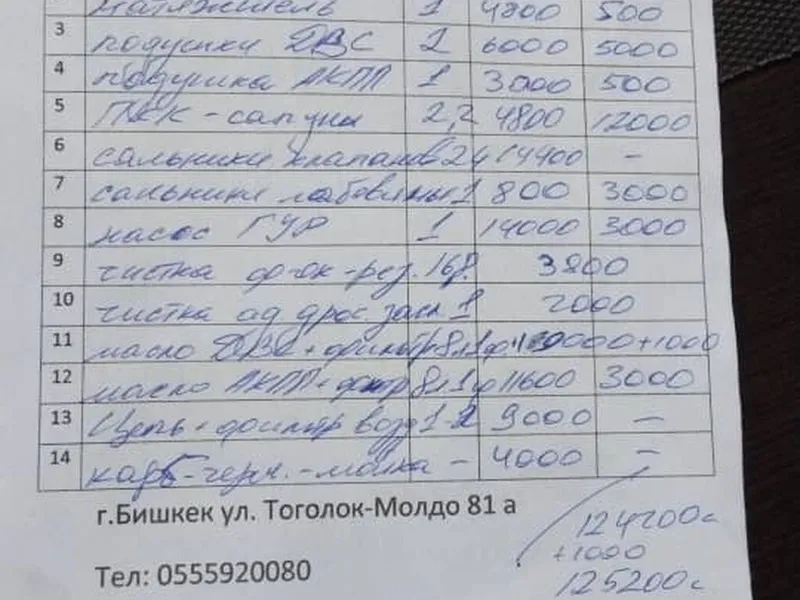 натяжитель 1 4800 500
3 подушки ДВС 2 6000 5000
4 подушка АКПП 1 3000 500
5 ГБЦК - сапуны 2,2 4800 12000
6 сальники клапанов 24 14400 -
7 сальники лобовины 1 800 3000
8 насос ГУР 1 14000 3000
9 чистка ф-ок-рез. 3800
10 чистка ад дрос засл 1 2000
11 масло ДВС + фильтр 8л 1ф +1000
12 масло АКПП + фильтр 8л 1ф 11600 3000
13 Цепь + фильтр возд 1-2 9000 -
14 карб-черн.-мойка - 4000 -
г.Бишкек ул. Тоголок-Молдо 81 а
124200с
+1000
Тел: 0555920080
125200с